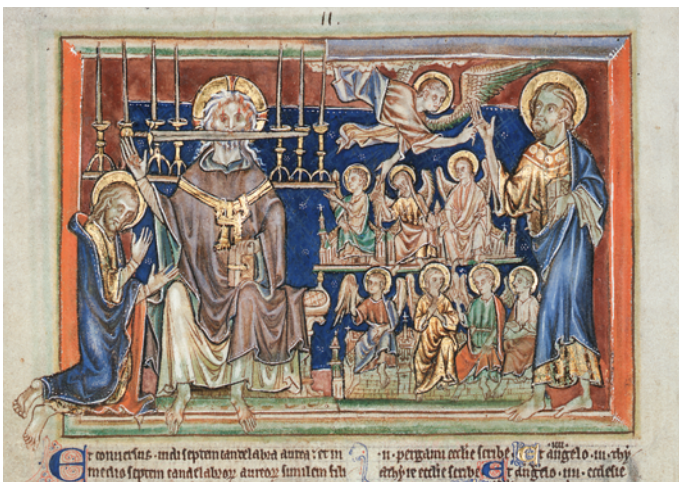 II.
Et conversus . vidi septem candelabra aurea: et in
medio septem candelabrorum aureorum similem fili
.ii. pergami ecclie scribe Et angelo .iii. thy
athyre ecclie scribe Et angelo .iiii. ecclesie